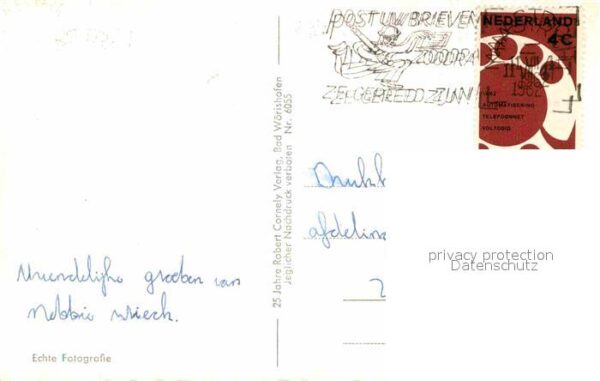 POST UW BRIEVEN
ZODRA
ZE GEREED ZIJN
NEDERLAND
4c
1962
1962
AUTOMATISERING
TELEFOONNET
VOLTOOID
25 Jahre Robert Cornely Verlag, Bad Wörishofen
Jeglicher Nachdruck verboten Nr. 6055
afdeling
privacy protection
Datenschutz
Vriendelijke groeten van
Nebbie
Echte Fotografie